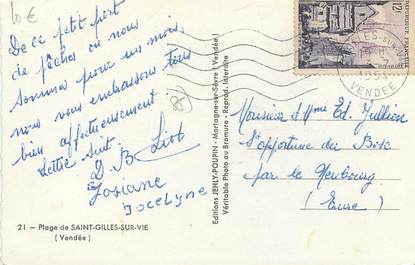 10 €
De ce petit port
de pêches où nous
sommes pour un mois,
nous vous embrassons tous
bien affectueusement.
Lettre suit.
Josiane
Jocelyne
85
21 — Plage de SAINT-GILLES-SUR-VIE
(Vendée)
Editions JEHLY-POUPIN - Mortagne-sur-Sèvre (Vendée)
Véritable Photo au Bromure - Reprod. Interdite
12
VENDÉE
Monsieur & Mme Ed. Jullien
St Opportune du Bosc
par le Neubourg
(Eure)